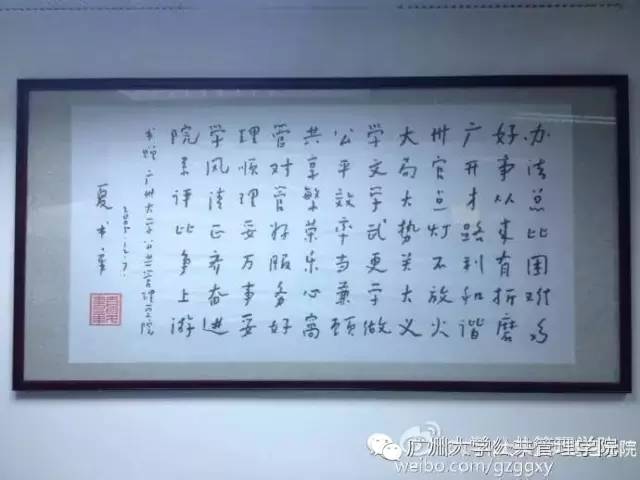 办法总比困难多
好事从来有折磨
广开才路利和谐
州官点灯不放火
大局大势关大义
学文学武更学做
公平效率当兼顾
共享繁荣乐心窝
管对管好服务好
理顺理妥万事妥
学风清正齐奋进
院系评比争上游
书赠广州大学公共管理学院
2005.12.7
夏书章
广州大学公共管理学院
weibo.com/gzggxy